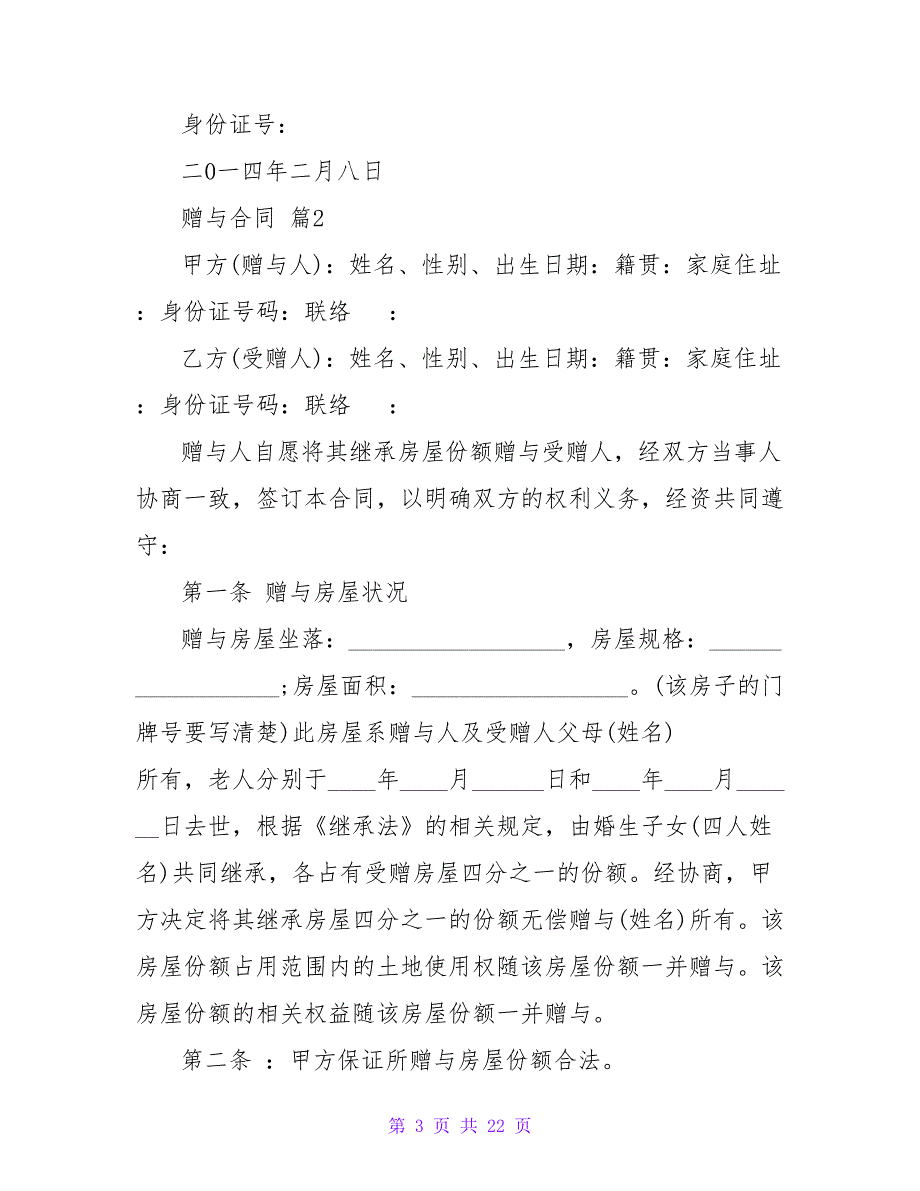 身份证号：
二0一四年二月八日
赠与合同 篇2
甲方(赠与人)：姓名、性别、出生日期：籍贯：家庭住址
：身份证号码：联络 ：
乙方(受赠人)：姓名、性别、出生日期：籍贯：家庭住址
：身份证号码：联络 ：
赠与人自愿将其继承房屋份额赠与受赠人，经双方当事人
协商一致，签订本合同，以明确双方的权利义务，经资共同遵
守：
第一条 赠与房屋状况
赠与房屋坐落：__________________，房屋规格：______
____________;房屋面积：__________________。(该房子的门
牌号要写清楚)此房屋系赠与人及受赠人父母(姓名)
所有，老人分别于____年____月______日和____年____月____
__日去世，根据《继承法》的相关规定，由婚生子女(四人姓
名)共同继承，各占有受赠房屋四分之一的份额。经协商，甲
方决定将其继承房屋四分之一的份额无偿赠与(姓名)所有。该
房屋份额占用范围内的土地使用权随该房屋份额一并赠与。该
房屋份额的相关权益随该房屋份额一并赠与。
第二条 ：甲方保证所赠与房屋份额合法。
第 3 页 共 22 页